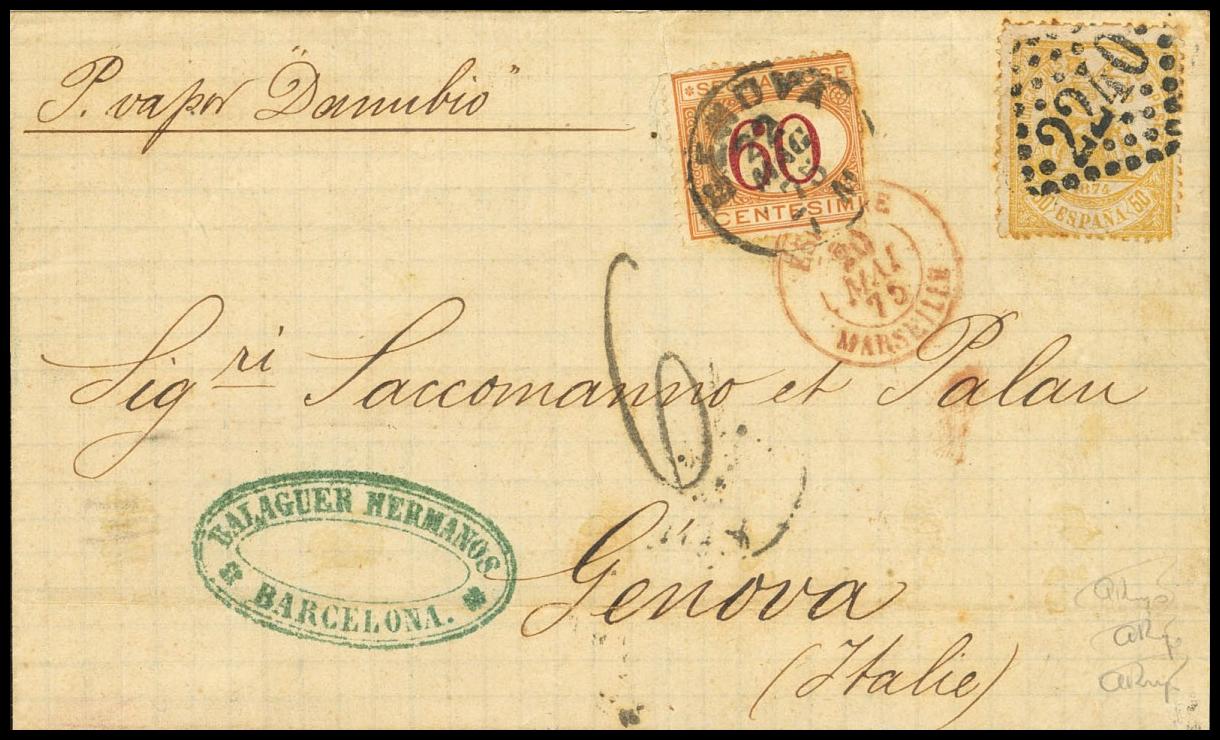 P. vapor "Danubio"
SEGNATASSE
60
CENTESIMI
GENOVA
22
MAG
75
2240
1874
50 ESPAÑA 50
ESPAGNE
20
MAI
75
MARSEILLE
6
Sigri Saccomanno et Palau
BALAGUER HERMANOS
BARCELONA.
Genova
(Italie)